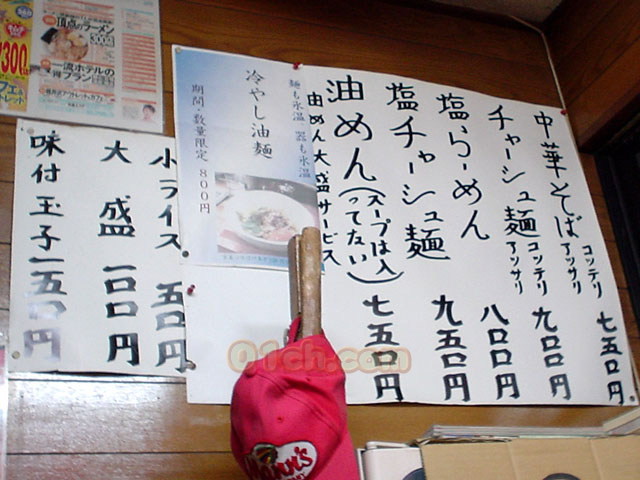 中華そば コッテリ アッサリ 七五〇円
チャーシュ麺 コッテリ アッサリ 九〇〇円
塩らーめん 八〇〇円
塩チャーシュ麺 九五〇円
油めん(スープは入ってない) 七五〇円
油めん大盛サービス
麺も氷温 器も氷温
冷やし油麺
期間・数量限定 800円
小ライス 五〇円
大盛 一〇〇円
味付玉子 一五〇円
頂点のラーメン
一流ホテルの
得プラン
01ch.com